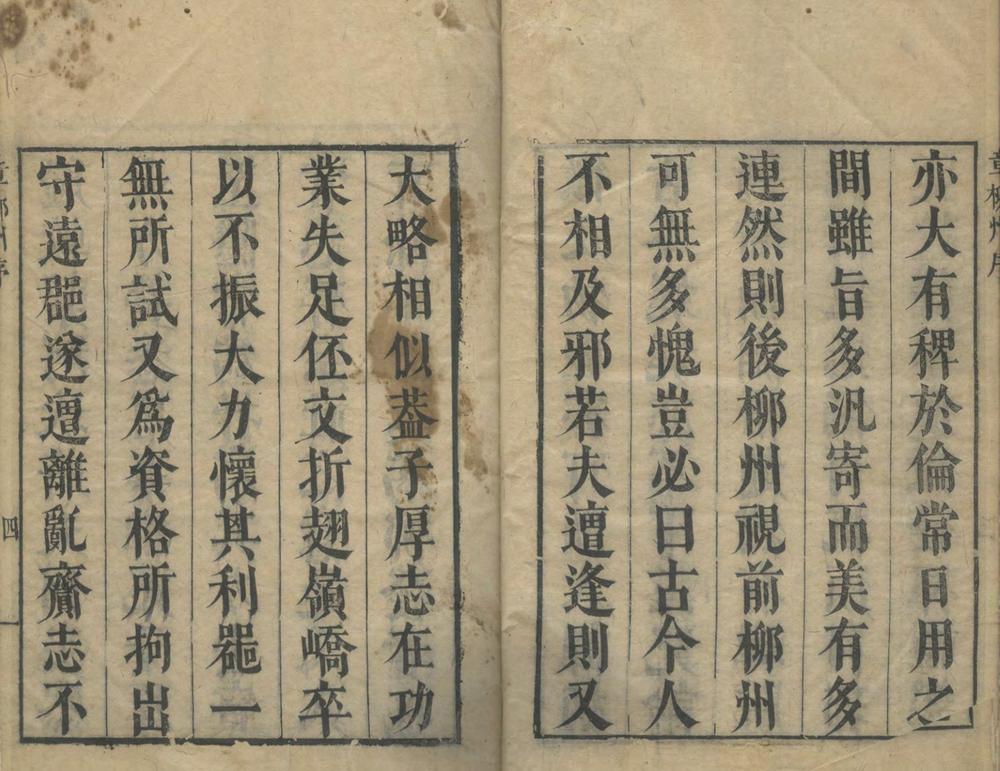 亦大有稗於倫常日用之
間雖旨多汎寄而美有多
連然則後柳州視前柳州
可無多愧豈必曰古今人
不相及邪若夫遭逢則又
大略相似葢子厚志在功
業失足伾文折翅嶺嶠卒
以不振大力懷其利噐一
無所試又爲資格所拘出
守遠郡遂遭離亂齎志不
四